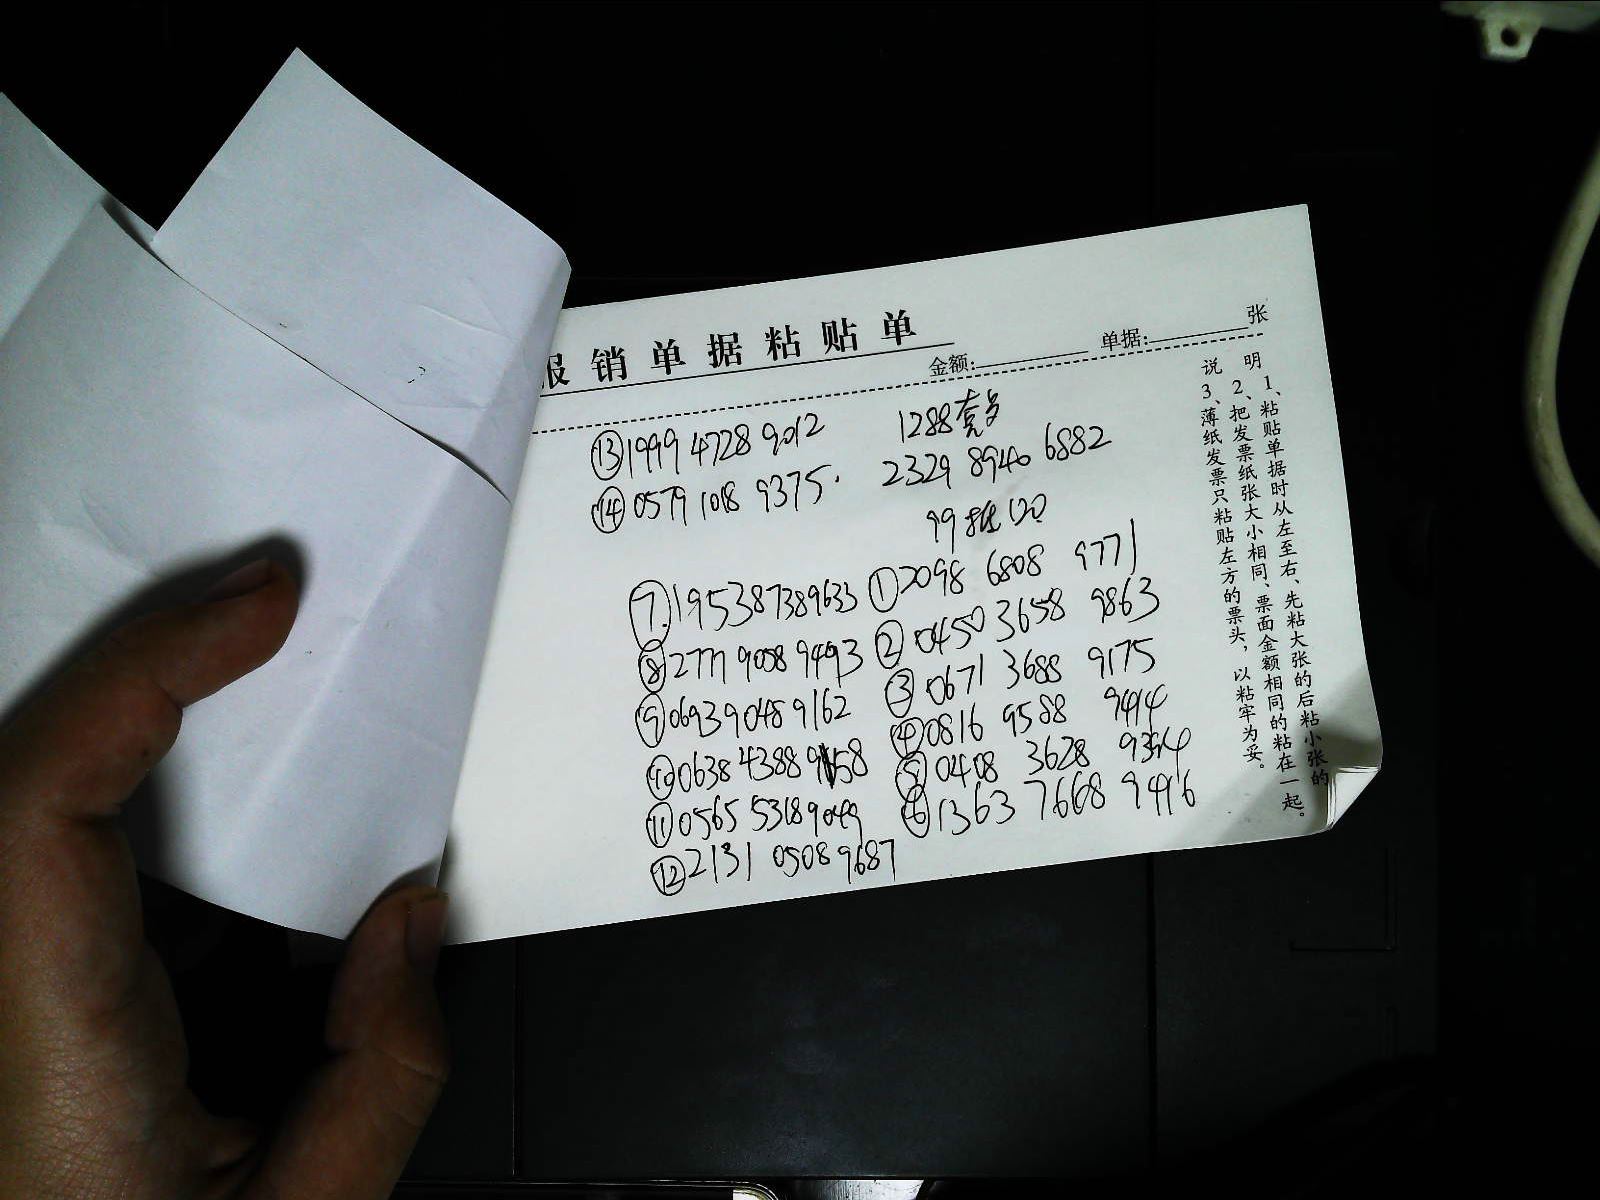 报销单据粘贴单
金额: 单据: 张
1288套
2329 8940 6882
99 100
① 2098 6808 9771
② 0450 3658 9863
③ 0671 3688 9175
④ 0816 9588 9414
⑤ 0408 3628
⑥ 1363 7668 9416
⑦ 195387389633
⑧ 2777 9058 9493
⑨ 0693 9048 9162
⑩ 0638 4388
⑪ 0565 5318 9049
⑫ 2131 0508 9687
⑬ 1999 4728 9012
⑭ 0579 1018 9375.
说明
1、粘贴单据时从左至右、先粘大张的后粘小张的。
2、把发票纸张大小相同、票面金额相同的粘在一起。
3、薄纸发票只粘贴左方的票头，以粘牢为妥。